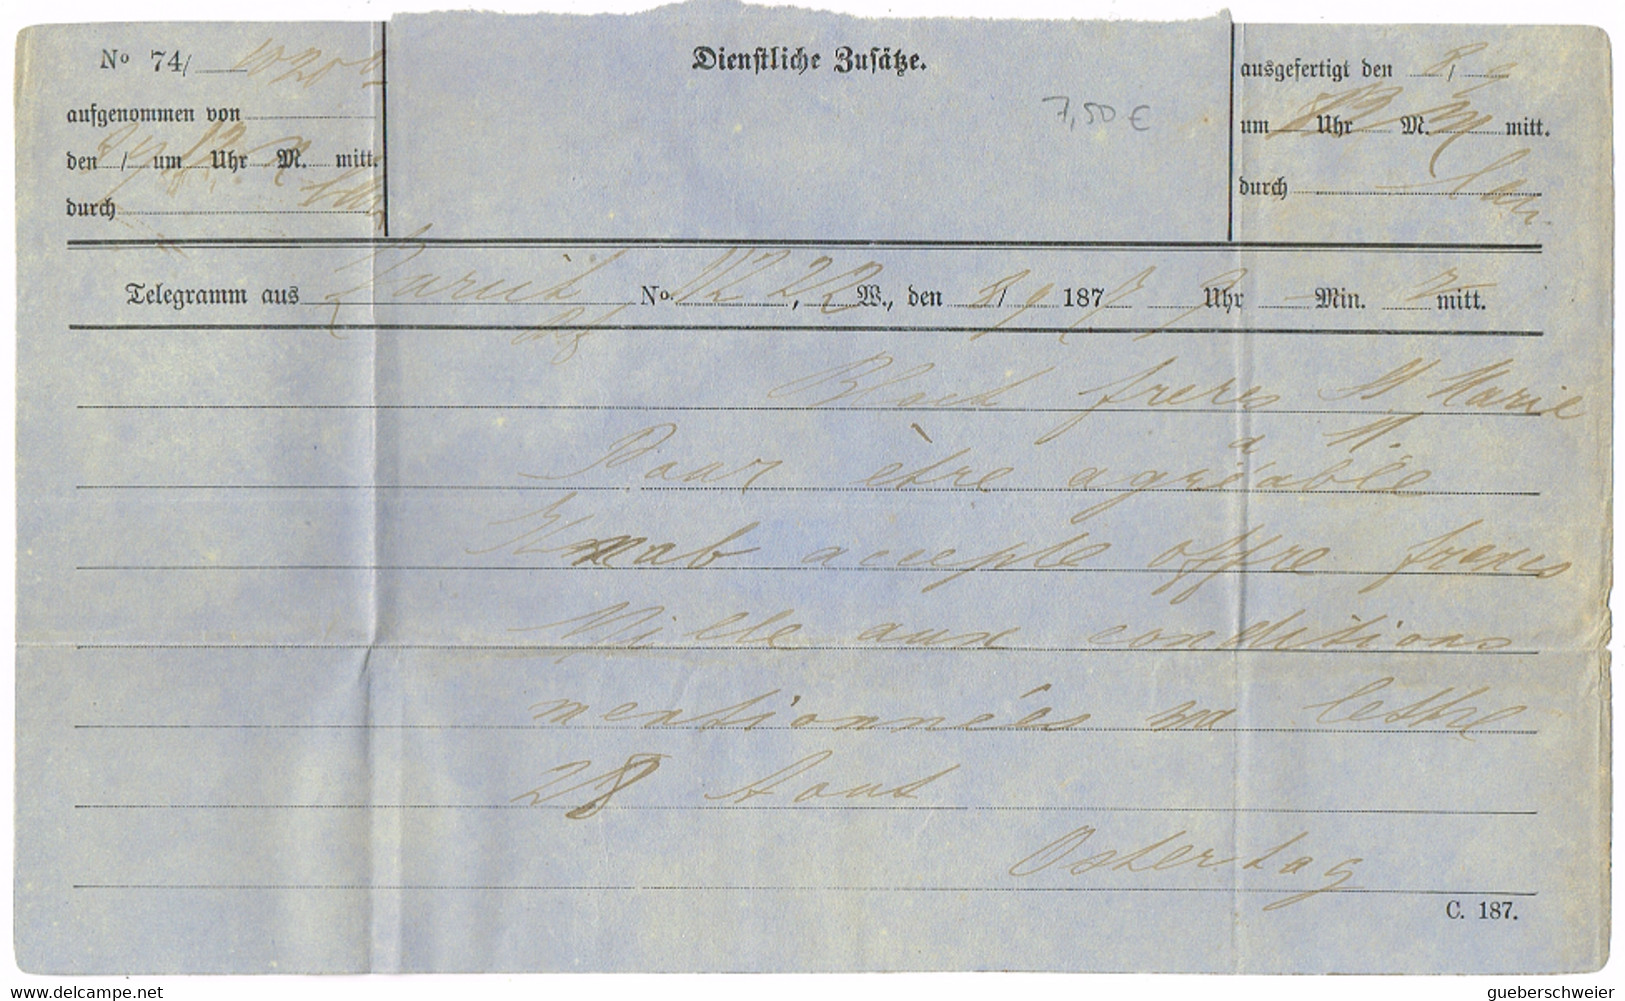 No 74/
aufgenommen von
den / um Uhr M. mitt.
durch
Dienstliche Zusätze.
7,50 €
ausgefertigt den 8/9
um Uhr M. mitt.
durch
Telegramm aus Zurich No. 12 22, W., den 8/9 187 Uhr Min. mitt.
Bloch freres St Marie
a M.
Pour être agréable
Knab accepte offre francs
Mille aux conditions
mentionnées sa lettre
28 Aout
Ostertag
C. 187.
www.delcampe.net
gueberschweier